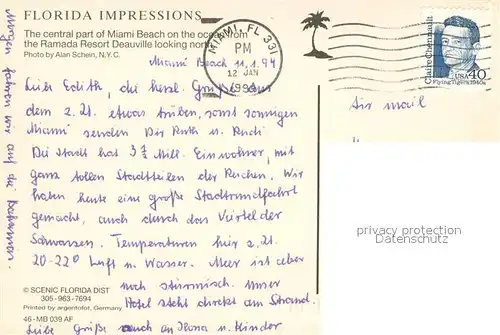 FLORIDA IMPRESSIONS
The central part of Miami Beach on the ocean from
the Ramada Resort Deauville looking north
Photo by Alan Schein, N.Y.C.
MIAMI, FL 331
PM
12 JAN
1994
Claire Chennault
Flying Tigers, 1940s
USA 40
Miami Beach 11.1.94
Liebe Edith, die herzl. Grüße aus
dem z. Zt. etwas trüben, sonst sonnigen
Miami senden Dir Ruth u. Rudi
Die Stadt hat 3 3/4 Mill. Einwohner, mit
ganz tollen Stadtteilen der Reichen. Wir
haben heute eine große Stadtrundfahrt
gemacht, auch durch das Viertel der
Schwarzen. Temperaturen hier z. Zt.
20-22° Luft u. Wasser. Meer ist aber
noch stürmisch. Unser
Hotel steht direkt am Strand.
Liebe Grüße auch an Ilona u. Kinder
Morgen fahren wir auf die Bahamas.
Air mail
PROTECTED
Datenschutz
© SCENIC FLORIDA DIST
305-963-7694
Printed by argentofor, Germany
46-MB 039 AF